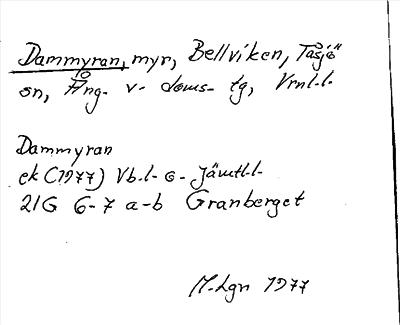 Dammyran, myr, Bellviken, Tåsjö
sn, Ång. v. doms. tg, Vrnl.l.
10
Dammyran
ek (1977) Vb.l. o. Jämtl.l.
21G 6-7 a-b Granberget
M. Lgn 1977